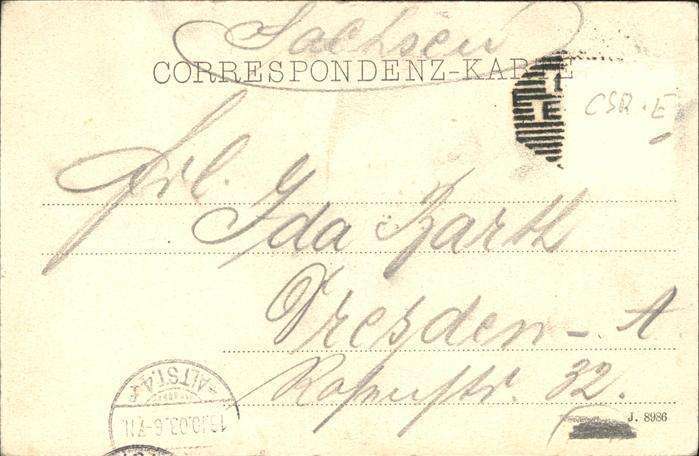 Sachsen
CORRESPONDENZ-KARTE
CSR.E
Frl.
Ida Barth
Dresden-A
32.
J. 8986
ALTST.
13.10.03.6-7N.